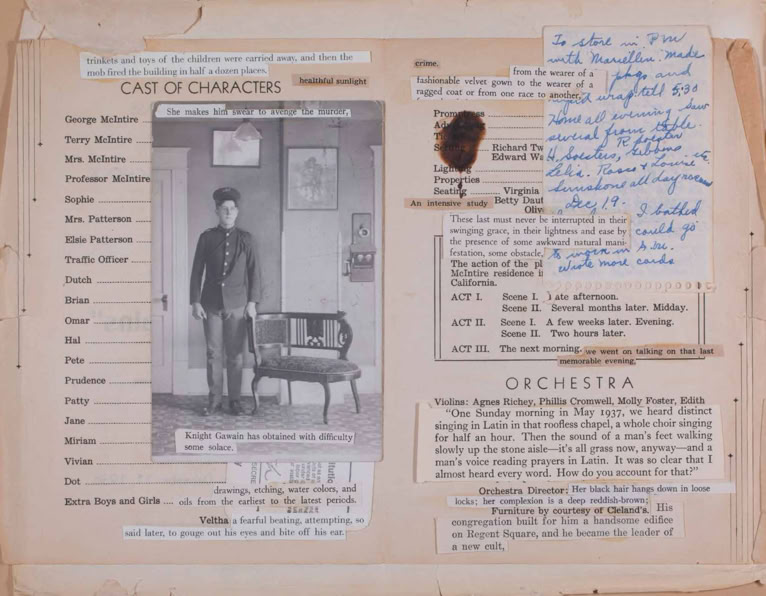 trinkets and toys of the children were carried away, and then the
mob fired the building in half a dozen places.
healthful sunlight
CAST OF CHARACTERS
She makes him swear to avenge the murder,
George McIntire
Terry McIntire
Mrs. McIntire
Professor McIntire
Sophie
Mrs. Patterson
Elsie Patterson
Traffic Officer
Dutch
Brian
Omar
Hal
Pete
Prudence
Patty
Jane
Miriam
Vivian
Dot
Extra Boys and Girls ....
Knight Gawain has obtained with difficulty
some solace.
drawings, etching, water colors, and
oils from the earliest to the latest periods.
Veltha a fearful beating, attempting, so
said later, to gouge out his eyes and bite off his ear.
crime.
from the wearer of a
fashionable velvet gown to the wearer of a
ragged coat or from one race to another,
To store in P.M
with Marcellin. made
pkgs and
wrap till 5:30
Home all evening saw
several from table.
Lelia. Rossa & Louise
Sunshone all day
Dec 19.
I bathed
could go
to work in
wrote more cards
Richard Tw
Edward Wa
Properties
Seating
Virginia
An intensive study
Betty Daut
Oliv
These last must never be interrupted in their
swinging grace, in their lightness and ease by
the presence of some awkward natural mani-
festation, some obstacle,
The action of the pl
McIntire residence i
California.
ACT I. Scene I. ate afternoon.
Scene II. Several months later. Midday.
ACT II. Scene I. A few weeks later. Evening.
Scene II. Two hours later.
ACT III. The next morning.
we went on talking on that last
memorable evening,
ORCHESTRA
Violins: Agnes Richey, Phillis Cromwell, Molly Foster, Edith
"One Sunday morning in May 1937, we heard distinct
singing in Latin in that roofless chapel, a whole choir singing
for half an hour. Then the sound of a man's feet walking
slowly up the stone aisle—it's all grass now, anyway—and a
man's voice reading prayers in Latin. It was so clear that I
almost heard every word. How do you account for that?"
Orchestra Director: Her black hair hangs down in loose
locks; her complexion is a deep reddish-brown;
Furniture by courtesy of Cleland's. His
congregation built for him a handsome edifice
on Regent Square, and he became the leader of
a new cult,